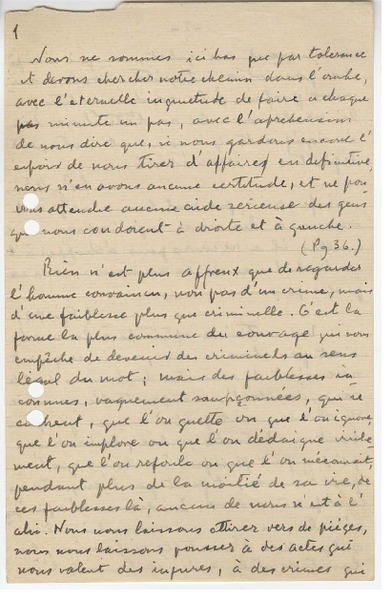 1
Nous ne sommes ici bas que par tolerance
et devons chercher notre chemin dans l'ombre,
avec l'eternelle inquietude de faire a chaque
minute un pas, avec l'aprehension
de nous dire que, si nous gardons encore l'
espoir de nous tirer d'affaires en definitive,
nous n'en avons aucune certitude, et ne pou-
vons attendre aucune aide serieuse des gens
qui nous coudoient à droite et à gauche.
(Pg 36.)
Rien n'est plus affreux que de regarder
l'homme convaincu, non pas d'un crime, mais
d'une faiblesse plus que criminelle. C'est la
forme la plus commune du courage qui nous
empêche de devenir des criminels au sens
legal du mot; mais des faiblesses in-
connues, vaguement soupçonnées, qui se
cachent, que l'on guette ou que l'on ignore,
que l'on implore ou que l'on dédaigne virile-
ment, que l'on refoule ou que l'on méconnait,
pendant plus de la moitié de sa vie, de
ces faiblesses là, aucun de nous n'est à l'
abri. Nous nous laissons attirer vers de pièges,
nous nous laissons pousser à des actes qui
nous valent des injures, à des crimes qui